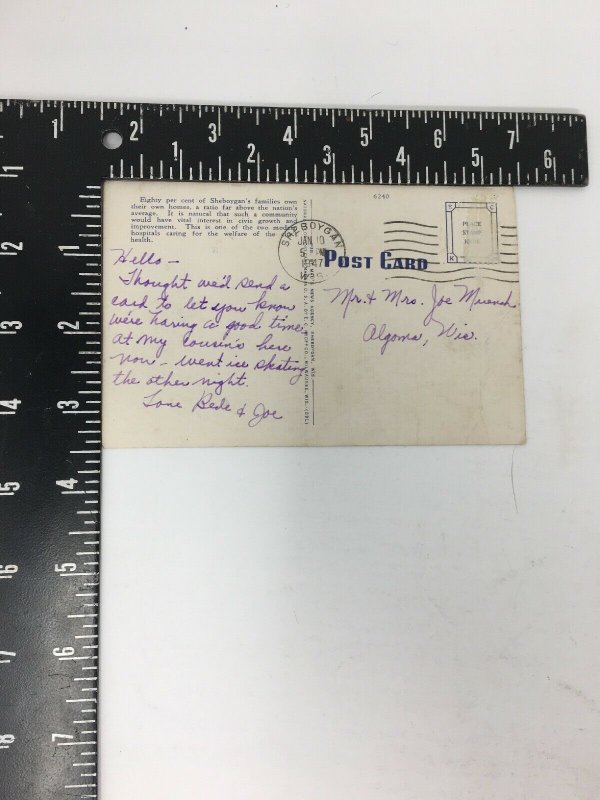 1 2 3 4 5 6 7
1 2 3 4 5 6
Eighty per cent of Sheboygan's families own
their own homes, a ratio far above the nation's
average. It is natural that such a community
would have vital interest in civic growth and
improvement. This is one of the two modern
hospitals caring for the welfare of the city's
health.
6240
SHEBOYGAN
JAN 10
1947
WIS.
PLACE
STAMP
HERE
POST CARD
Hello -
Thought we'd send a
card to let you know
we're having a good time
at my cousin's here
now - went ice skating
the other night.
Love Bede & Joe
Mr. & Mrs. Joe Muench
Algoma, Wis.
1 2 3 4 5 6 7 8
1 2 3 4 5 6 7